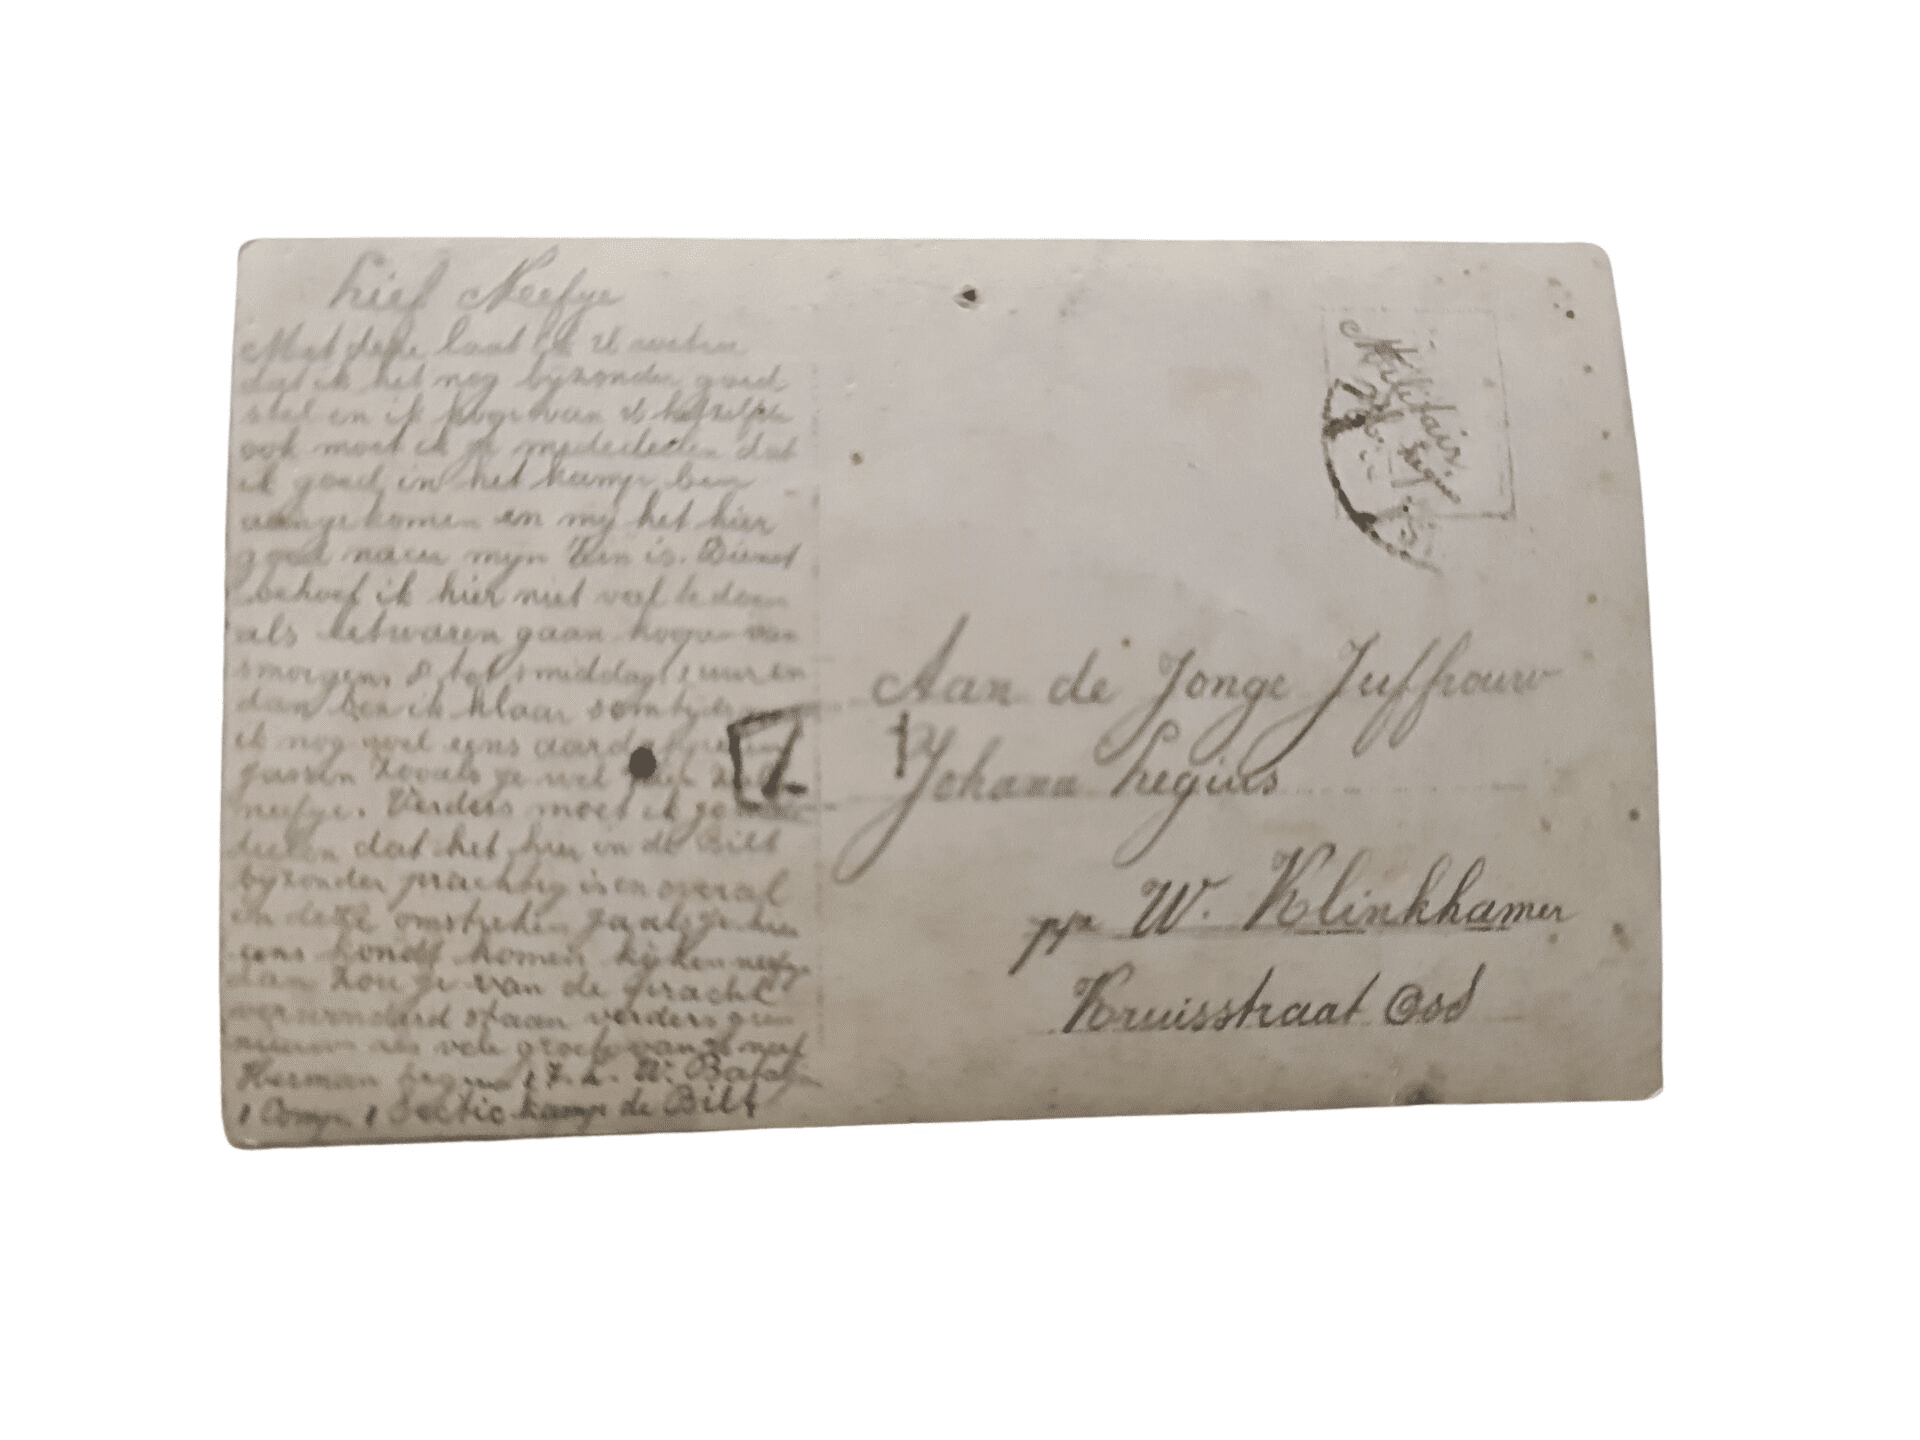 Lief Neefye
Met deze laat ik U weten
dat ik het nog byzonder goed
stel en ik hoge van U hetzelfde
ook moet ik je mededeelen dat
ik goed in het kamp ben
aangekomen en my het hier
goed naar myn Zin is. Dienst
behoef ik hier niet veel te doen
als eetwaren gaan hogen van
smorgens 8 tot smiddag uur en
dan ben ik klaar somtyds
ik nog wel eens
Zooals je wel
neefye. Verders moet ik
deelen dat het hier in de Bilt
byzonder prachtig is en overal
in deze omstreken ja als je hier
eens kondt komen kijken neefye
dan zou je van de pracht
verwonderd staan verders geen
nieuws als vele groete van U neef
Herman 17. W:
1 Comp. 1 Sectie kamp de Bilt
Militair
Aan de Jonge Juffrouw
Johann hegius
pp W. Klinkhamer
Kruisstraat Osd